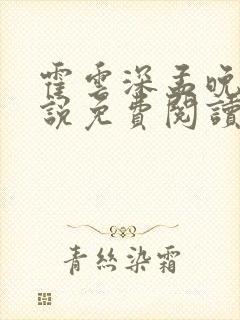 霍雲深孟晚
說免費閱讀
青絲染霜